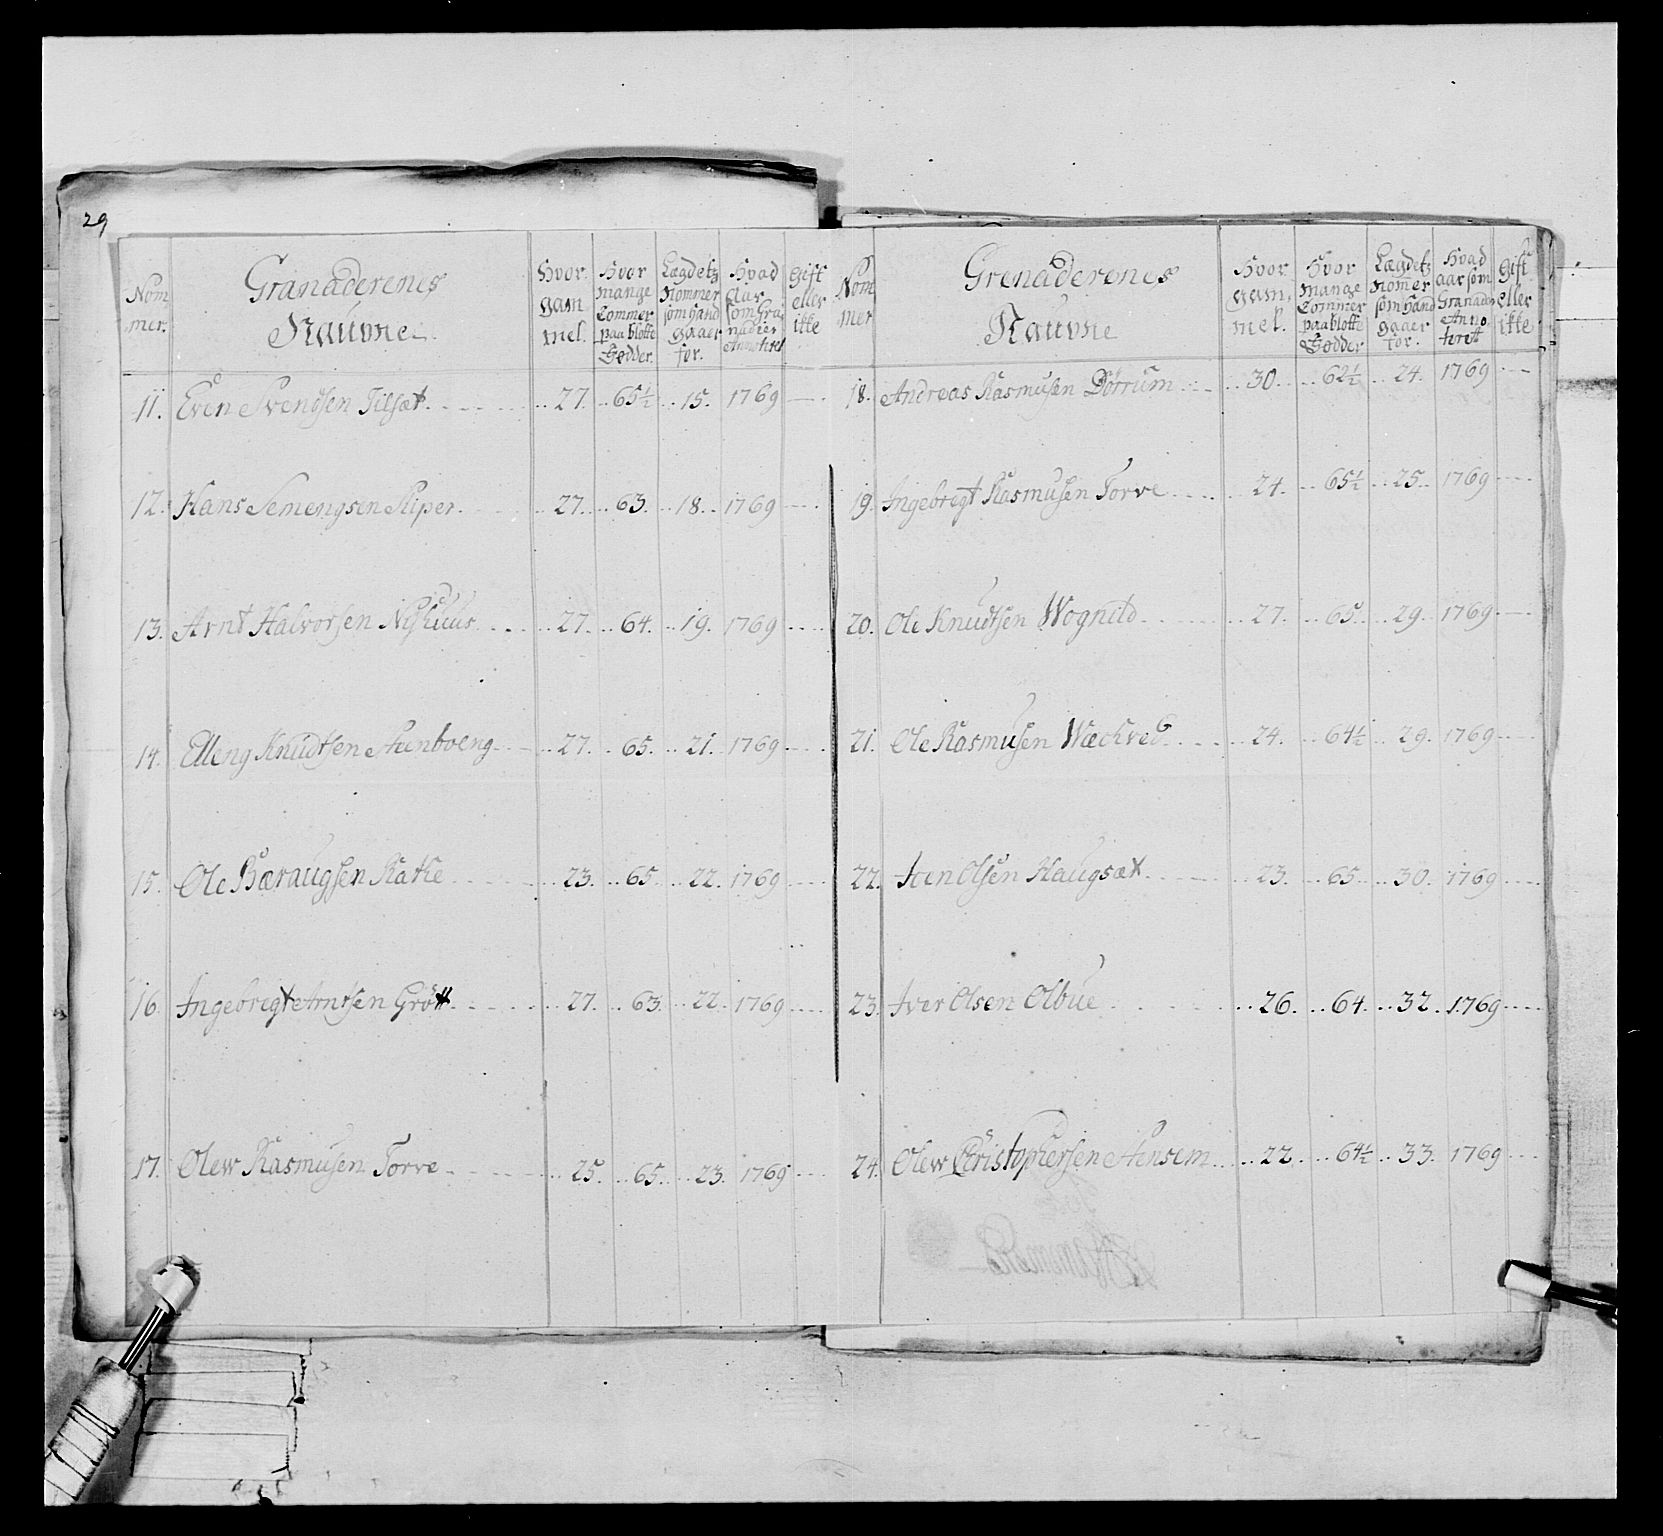 29
Nom
mer.
Granaderenes
Nauvne.
Hvor
gam
mel.
Hvor
mange
Tommer
paa blotte
Fødder.
Lægdets
Nommer
som hand
gaaer
for.
Hvad
Aar
som Gra
nadier
Annoteret
Gift
eller
ikke
11. Even Svendsen Tilset 27. 65½ 15. 1769
12. Hans Semengsen Riper 27. 63. 18. 1769
13. Arnt Halvorsen Nyhuus 27. 64. 19. 1769
14. Elleng Knudtsen Steenboeng 27. 65. 21. 1769
15. Ole Bæraugsen Rathe 23. 65 22. 1769
16. Ingebrigt Arntsen Gröt 27. 63. 22. 1769
17. Olew Rasmusen Torve 25. 65. 23. 1769
Nom
mer
Grenaderenes
Nauvne
Hvor
gam
mel.
Hvor
mange
Tommer
paa blotte
Fødder
Lægdets
Nomer
som hand
gaaer
for.
Hvad
aar som
Granader
Anno
teret
Gift
eller
ikke
18. Andreas Rasmusen Dörrum 30. 62½ 24. 1769
19. Ingebrigt Rasmusen Torve 24. 65½ 25. 1769
20. Ole Knudtsen Wognild 27. 65. 29. 1769
21. Ole Rasmusen Wæckveb 24. 64½ 29. 1769
22. Iten Olsen Haugsæt 23. 65. 30. 1769
23. Iver Olsen Olbue 26. 64. 32. 1769
24. Olew Christophersen Stensem 22. 64½ 33. 1769